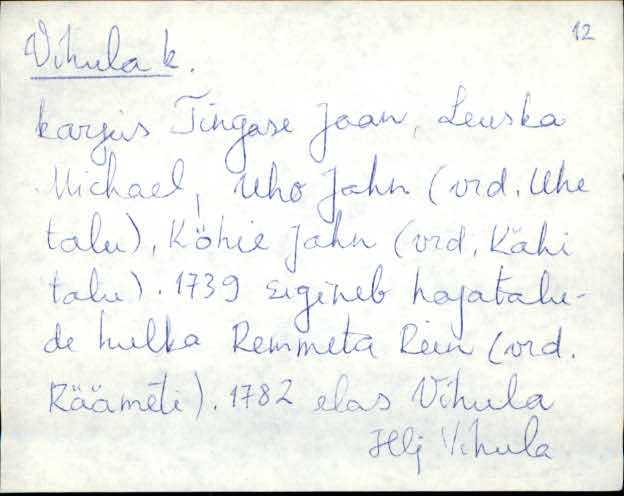 12
Vihula k.
karjus Tingase Jaan, Leuska
Michael, Uho Jahn (vrd. Uhe
talu), Köhie Jahn (vrd. Kähi
talu). 1739 ergineb hajatalu-
de hulka Remmeta Rein (vrd.
Räämeti). 1782 elas Vihula
Hlj Vihula